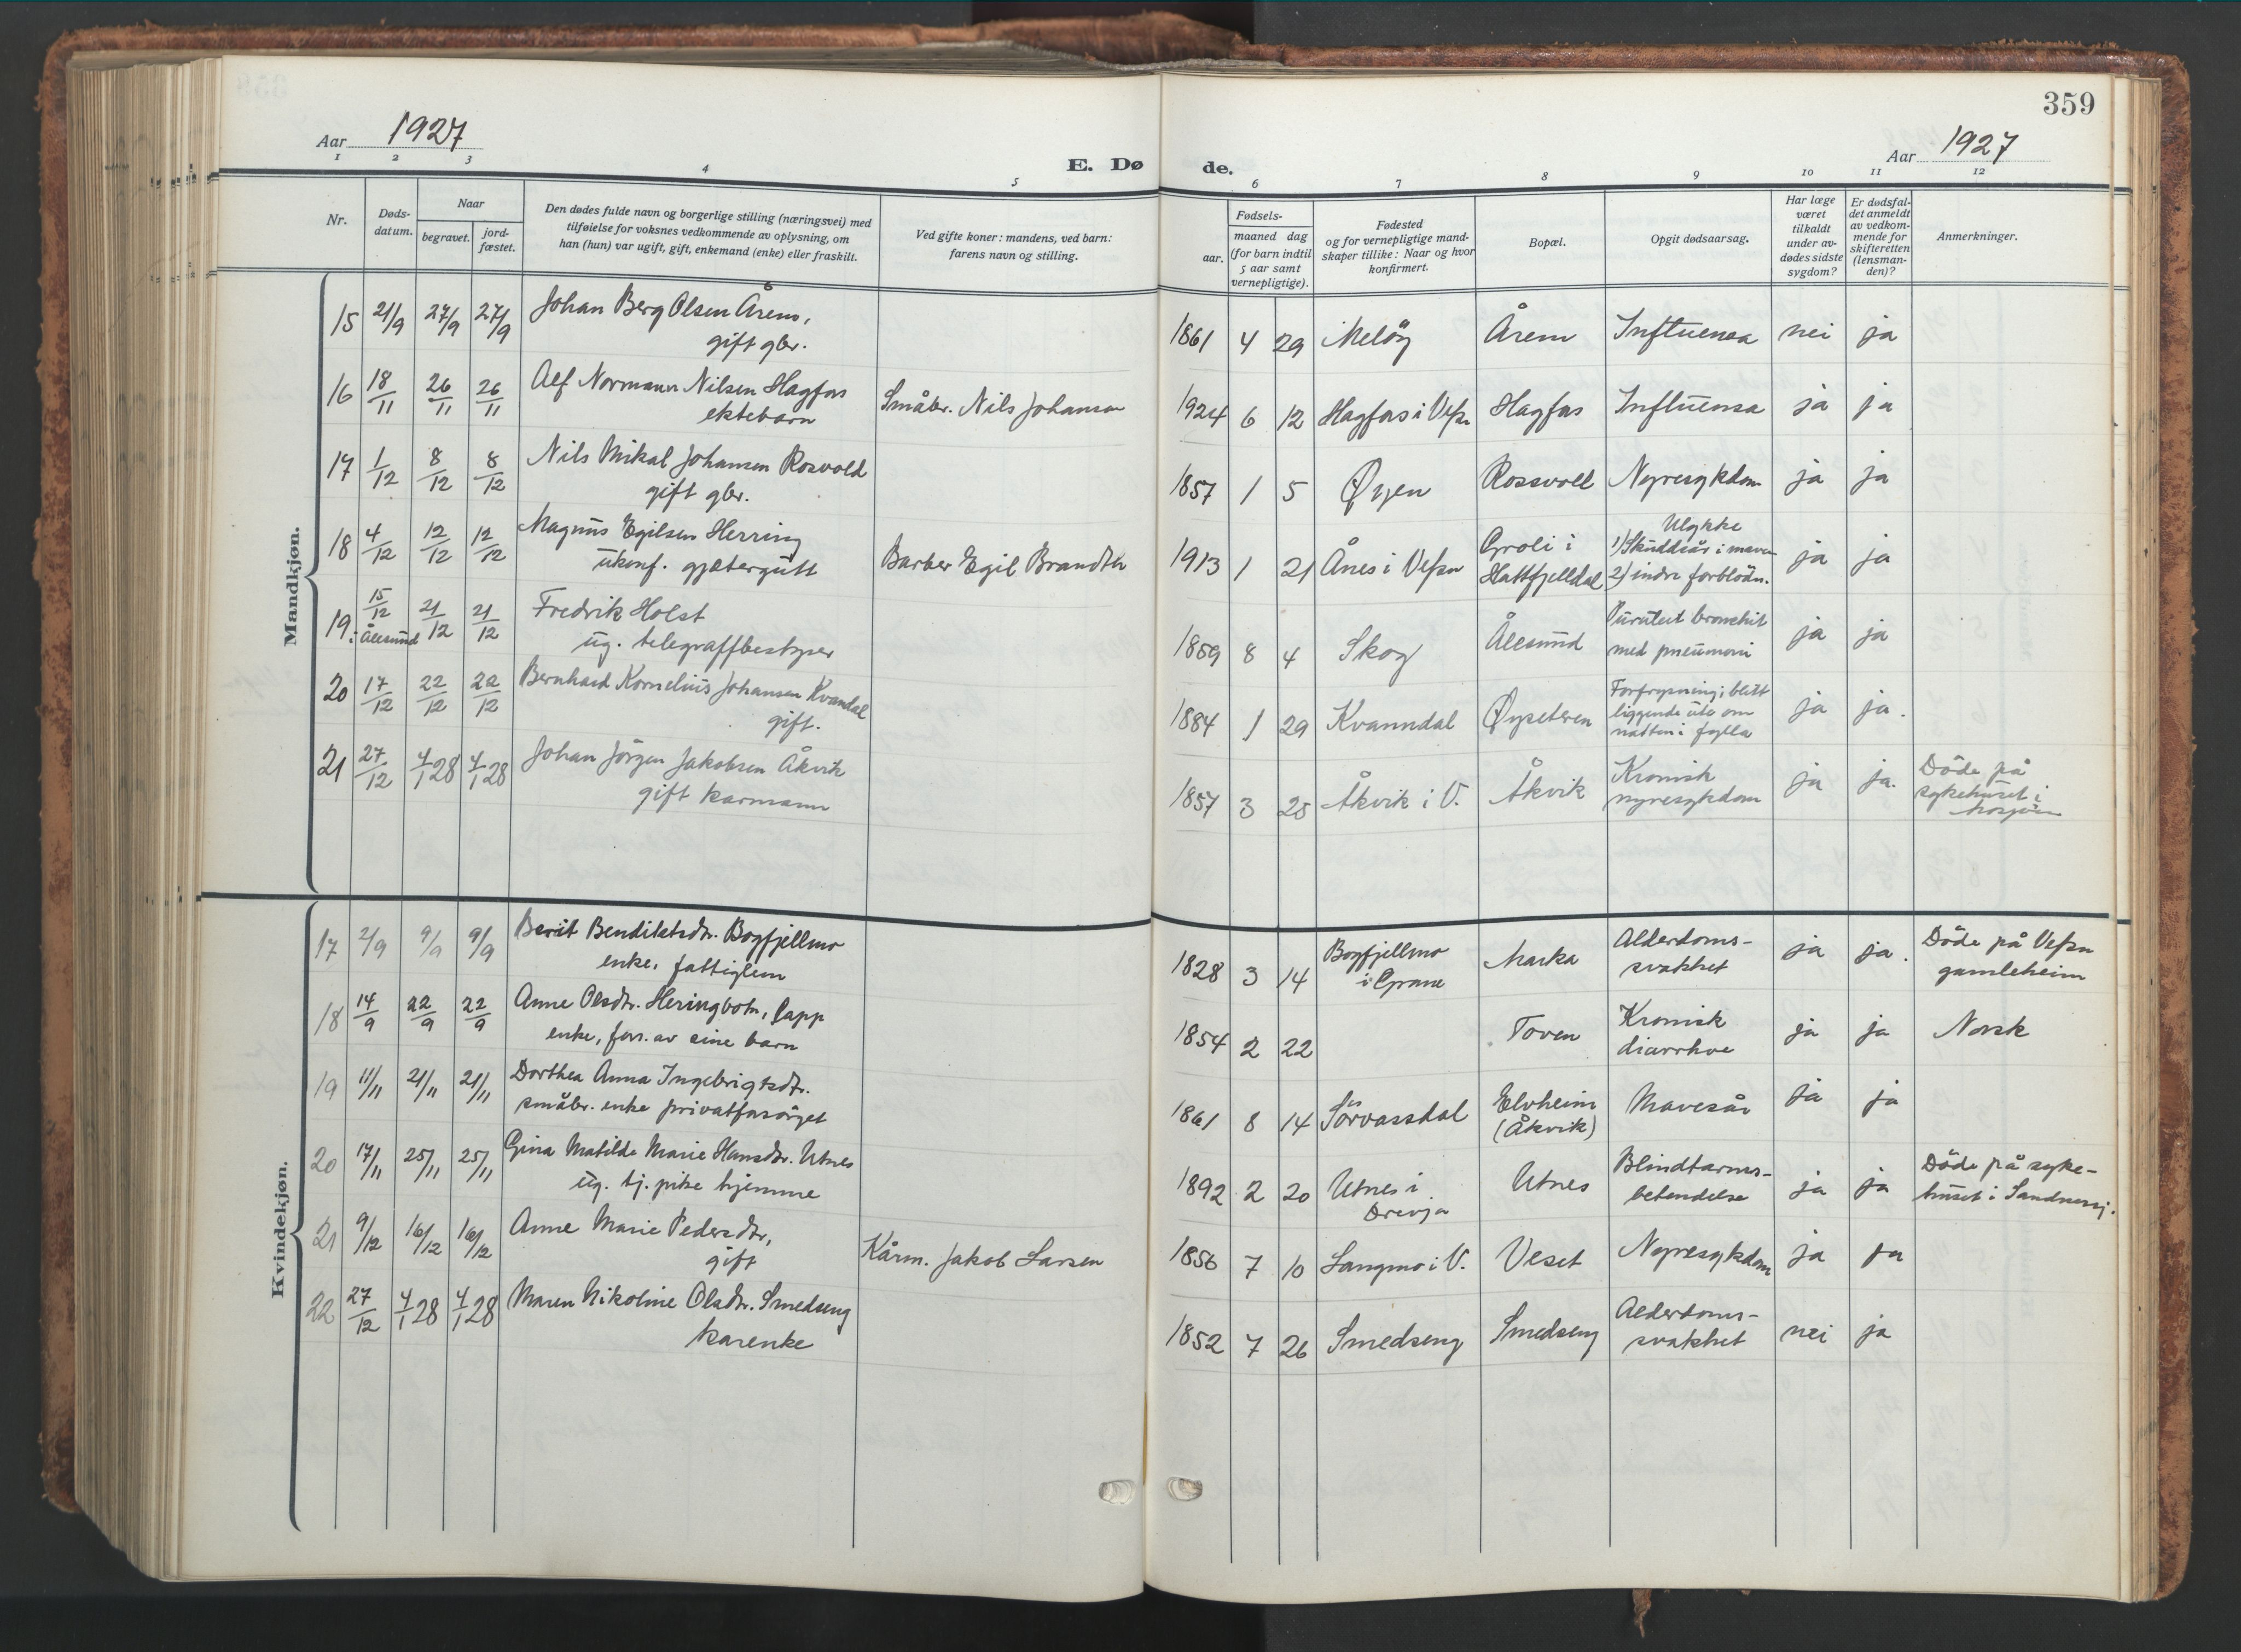 359
Aar 1927
E. Dø
de.
Aar 1927
1 2 3 4 5 6 7 8 9 10 11 12
Nr.
Døds-
datum.
Naar
begravet.
jord-
fæstet.
Den dødes fulde navn og borgerlige stilling (næringsvei) med
tilføielse for voksnes vedkommende av oplysning, om
han (hun) var ugift, gift, enkemand (enke) eller fraskilt.
Ved gifte koner: mandens, ved barn:
farens navn og stilling.
Fødsels-
aar.
maaned dag
(for barn indtil
5 aar samt
vernepligtige).
Fødested
og for vernepligtige mand-
skaper tillike: Naar og hvor
konfirmert.
Bopæl.
Opgit dødsaarsag.
Har læge
været
tilkaldt
under av-
dødes sidste
sygdom?
Er dødsfal-
det anmeldt
av vedkom-
mende for
skifteretten
(lensman-
den)?
Anmerkninger.
Mandkjøn.
15 21/9 27/9 27/9 Johan Berg Olsen Årem, 1861 4 29 Meløy Årem Influensa nei ja
gift gbr.
16 18/11 26/11 26/11 Alf Normann Nilsen Hagfors Småbr. Nils Johanson 1924 6 12 Hagfors i Vefsn Hagfors Influensa ja ja
ektebarn
17 1/12 8/12 8/12 Nils Mikal Johansen Rosvold 1857 1 5 Øyen Rossvoll Nyresykdom ja ja
gift gbr.
18 4/12 12/12 12/12 Magnus Egilsen Herring Barber Egil Brandth 1913 1 21 Ånes i Vefsn Groli i Ulykke ja ja
ukonf. gjætergutt Hattfjelldal 1) Skuddsår i maven
2) indre forblödn.
19 15/12 21/12 21/12 Fredrik Holst 1859 8 4 Skog Ålesund Purulent bronchit ja ja
i Ålesund ug. telegraffbestyrer med pneumoni
20 17/12 22/12 22/12 Bernhard Kornelius Johansen Kvandal 1884 1 29 Kvanndal Øyseteren Forfrysning; blitt ja ja.
gift. liggende ute om
natten i fylla
21 27/12 4/1 28 4/1 28 Johan Jörgen Jakobsen Åkvik 1857 3 25 Åkvik i V. Åkvik Kronisk ja ja. Döde på
gift karmann nyresykdom sykehuset i
Mosjöen
Kvindekjøn.
17 2/9 9/9 9/9 Berit Bendiktsdtr. Bogfjellmo 1828 3 14 Bogfjellmo Marka Alderdoms- ja ja. Döde på Vefsn
enke, fattiglem i Grane svakhet gamleheim
18 14/9 22/9 22/9 Anne Olsdtr. Heringbotn, Lapp 1854 2 22 Toven Kronisk ja ja Norsk
enke, fors. av sine barn diarrhoe
19 11/11 21/11 21/11 Dorthea Anna Ingebrigtsdtr. 1861 8 14 Sörvassdal Elvheim Mavesår ja ja
småbr. enke privatforsörget (Åkvik)
20 17/11 25/11 25/11 Gina Matilde Marie Hansdtr. Utnes 1892 2 20 Utnes i Utnes Blindtarms- ja ja Döde på syke-
ug. tj. pike hjemme Drevja betendelse huset i Sandnessj.
21 9/12 16/12 16/12 Anne Marie Pedersdtr, Kårm. Jakob Larsen 1856 7 10 Langmo i V. Veset Nyresykdom ja ja
gift
22 27/12 4/1 28 4/1 28 Maren Nikoline Olsdtr. Smedseng 1852 7 26 Smedseng Smedseng Alderdoms- nei ja
karenke svakhet